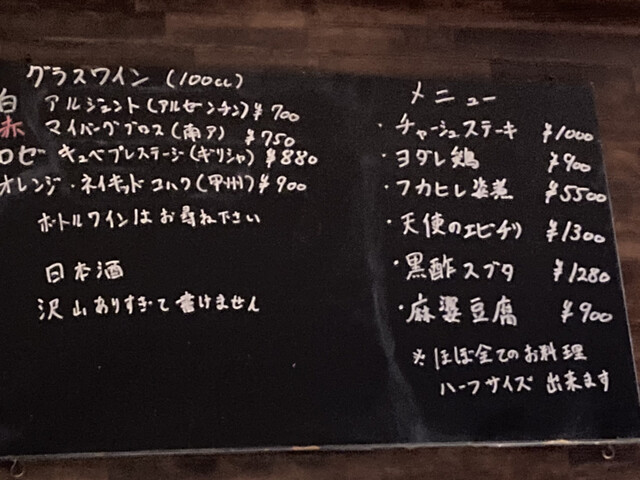 グラスワイン (100cc)
白 アルジェント(アルゼンチン) ¥700
赤 マイバーグブロス(南ア) ¥750
ロゼ キュベプレステージ(ギリシャ) ¥880
オレンジ・ネイキッドコハク(甲州) ¥900
ボトルワインはお尋ね下さい
日本酒
沢山ありすぎて書けません
メニュー
・チャーシュステーキ ¥1000
・ヨダレ鶏 ¥900
・フカヒレ姿煮 ¥5500
・天使のエビチリ ¥1300
・黒酢スブタ ¥1280
・麻婆豆腐 ¥900
※ほぼ全てのお料理
ハーフサイズ 出来ます